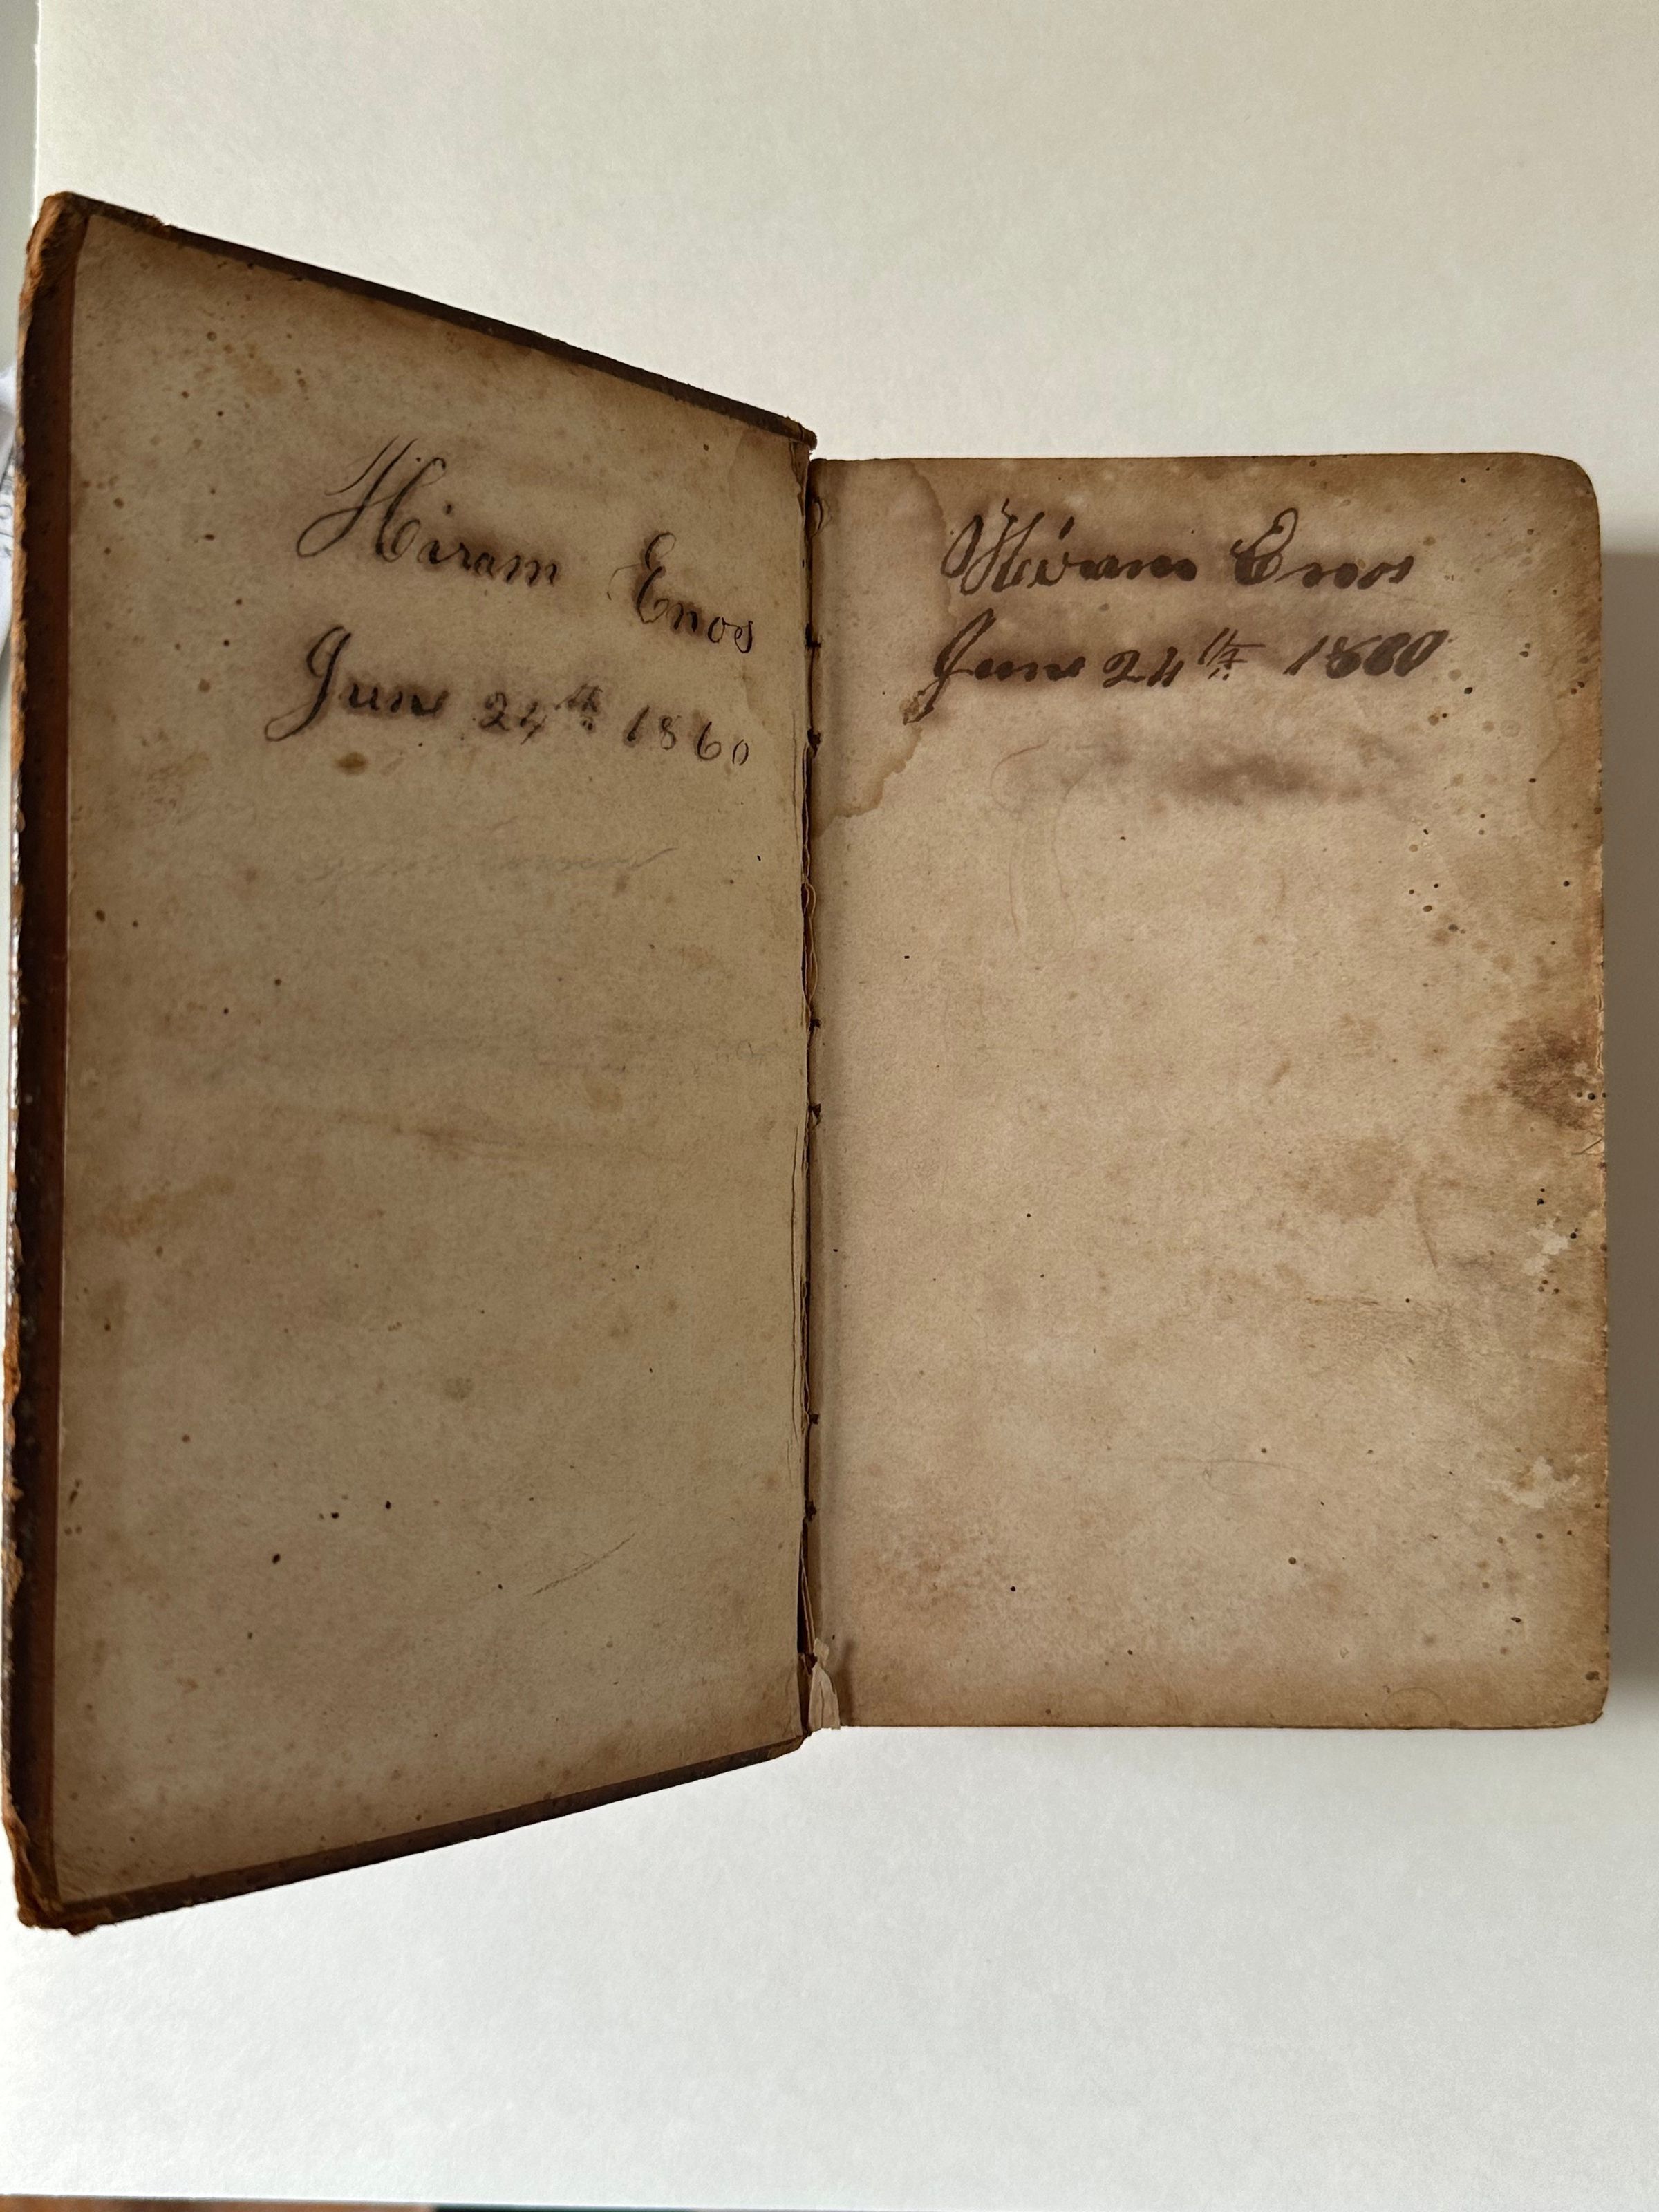 Hiram Enos
June 24th 1860
Hiram Enos
June 24th 1860